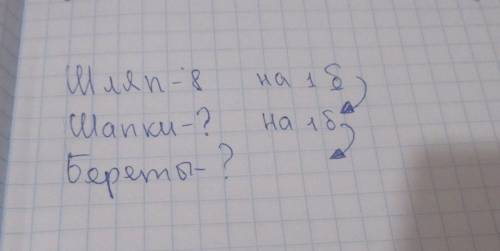 Шляп-8 на 1 б
Шапки-? на 1 б
Береты-?